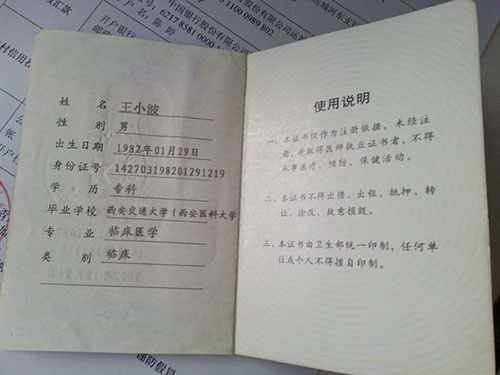 姓 名 王小波
性 别 男
出生日期 1982年01月29日
身份证号 142703198201291219
学 历 专科
毕业学校 西安交通大学(西安医科大学
专 业 临床医学
类 别 临床
使用说明
一、本证书仅作为注册依据。未经注
册,并取得医师执业证书者,不得
从事医疗、预防、保健活动。
二、本证书不得出借、出租、抵押、转
让、涂改、故意损毁。
三、本证书由卫生部统一印制,任何单
位或个人不得擅自印制。
中国银行股份有限公司运城河东支
6217 8581 0000
1100 0989 802
开户银行
村信用社
谨防假冒